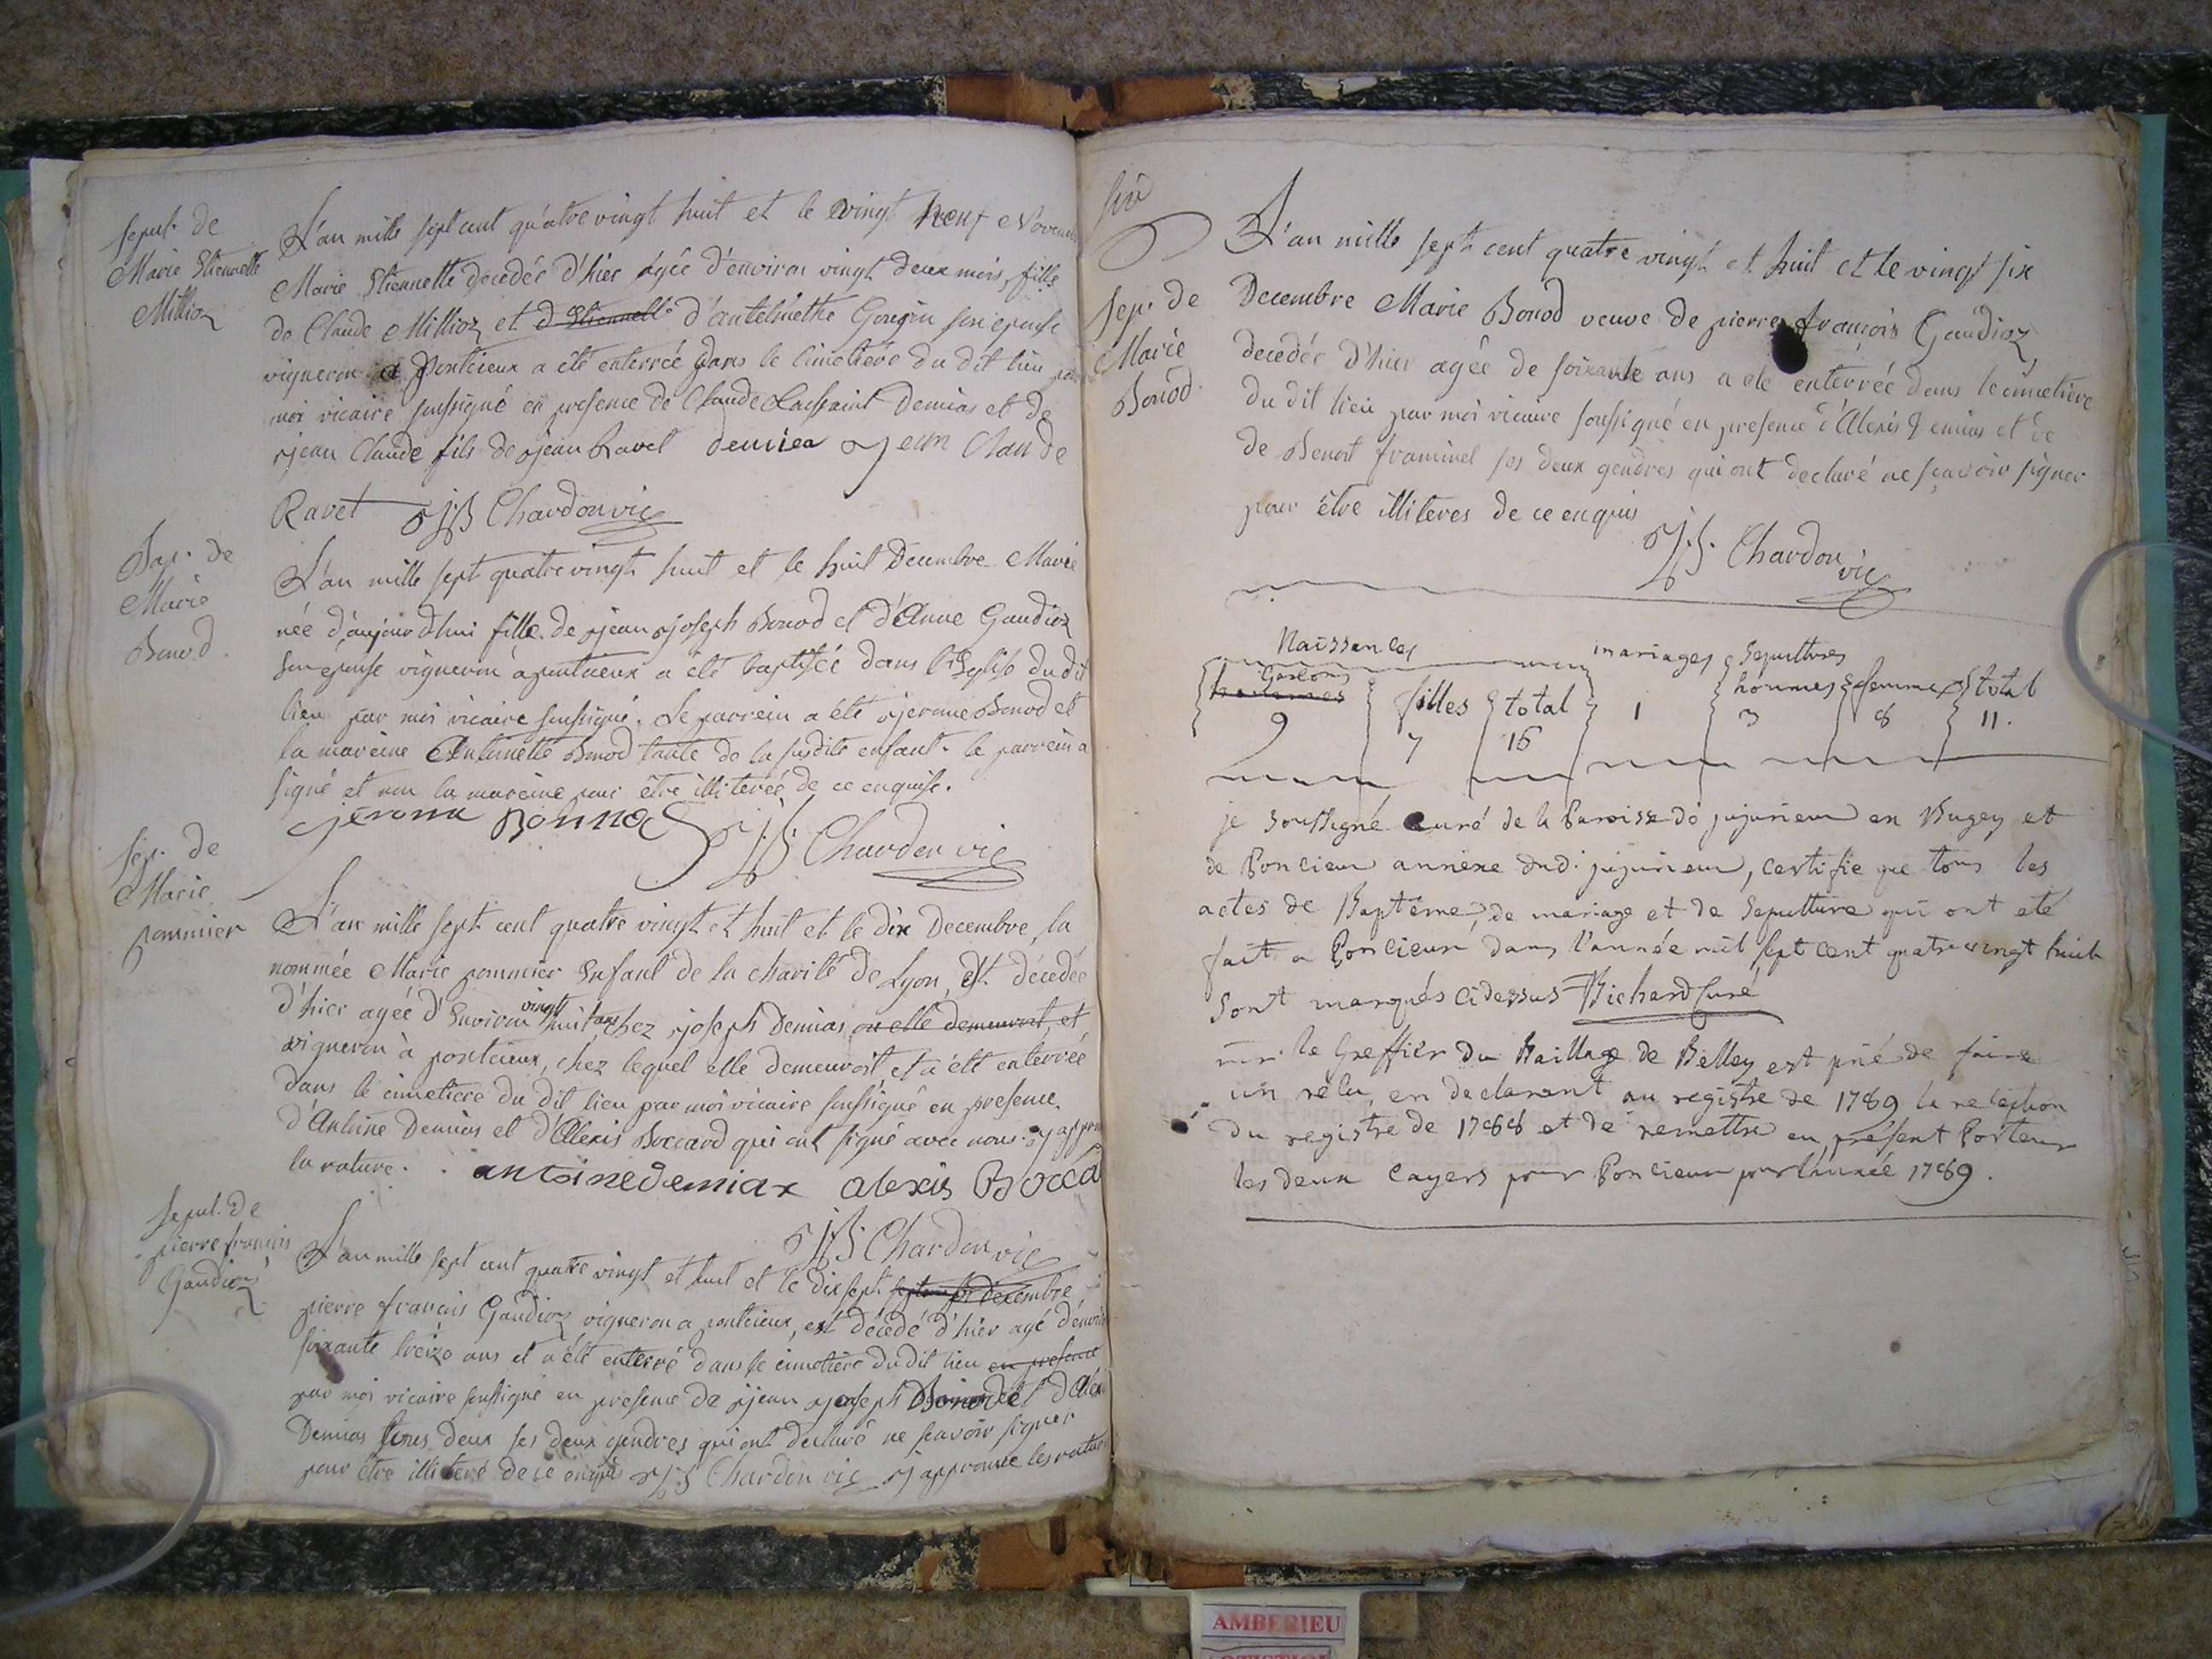 sepul. de
Marie Étiennette
Millioz
L'an mille sept cent quatre vingt huit et le vingt neuf Novem
Marie Étiennette decedée d'hier agée d'environ vingt deux mois, fille
de Claude Millioz et d'Étiennette d'antelmette Goujin son épouse
vigneron a Pontcieux a été enterrée dans le cimetière du dit lieu par
moi vicaire soussigné en presence de Claude Laussaint Demias et de
jean Claude fils de jean Ravet demiea jean Claude
Ravet JB Chardon vic
Bap. de
Marie
Bonod.
L'an mille sept quatre vingt huit et le huit Decembre Marie
née d'aujourdhui fille de jean joseph Bonod et d'Anne Gaudioz
son epouse vigneron a pontcieux a été baptisée dans l'Église du dit
lieu par moi vicaire soussigné. Le parrein a été jerome Bonod et
la mareine Antoinette Bonod tante de la susdite enfant. le parrein a
signé et non la mareine pour être illiterée de ce enquise.
jérome Bonnod JB Chardon vic
sep. de
Marie
pommier
L'an mille sept cent quatre vingt et huit et le dix Decembre, la
nommée Marie pommier Enfant de la charité de Lyon, est décedée
d'hier agée d'Environ vingt huit ans chez joseph Demias ou elle demeuroit, et
vigneron à pontcieux, chez lequel elle demeuroit et a été enterrée
dans le cimetiere du dit lieu par moi vicaire soussigné en presence
d'Antoine Demias et d'Alexis Boccard qui ont signé avec nous j'y appr
la rature. antoine demiax alexis Bocca
JB Chardon vic
sepul. de
pierre francois
Gaudioz
L'an mille sept cent quatre vingt et huit et le dix sept decembre
pierre françois Gaudioz vigneron a pontcieux, est décedé d'hier agé d'environ
soixante treize ans et a été enterré dans le cimetière du dit lieu en presence
par moi vicaire soussigné en presence de jean joseph Bonod et d'Alexi
Demias tous deux ses deux gendres qui ont declaré ne sçavoir signer
pour être illiteré de ce enquis JB Chardon vic j'approuve les ratur
six
Sep. de
Marie
Bonod.
L'an mille sept cent quatre vingt et huit et le vingt six
Decembre Marie Bonod veuve de pierre françois Gaudioz
decedée d'hier agée de soixante ans a eté enterrée dans le cimetiere
du dit lieu par moi vicaire soussigné en presence d'Alexis Demias et de
de Benoit framinel ses deux gendres qui ont declaré ne sçavoir signer
pour être illiteres de ce enquis
JB Chardon vic
Naissances mariages Sepultures
Garcons
hommes filles total 1 hommes femmes total
9 7 16 3 8 11.
je soussigné curé de la Paroisse de jujurieux en Bugey et
de Poncieux annexe dud. jujurieux, certifie que tous les
actes de Baptême, de mariage et de Sepulture qui ont eté
fait a Poncieux dans l'année mil sept cent quatre vingt huit
sont marqués cidessus Richard curé
mr. le Greffier du Baillage de Belley est prié de faire
un relu, en declarant au registre de 1789 la reception
du registre de 1788 et de remettre au présent Porteur
les deux cayers pour Poncieux pour l'année 1789.
AMBERIEU